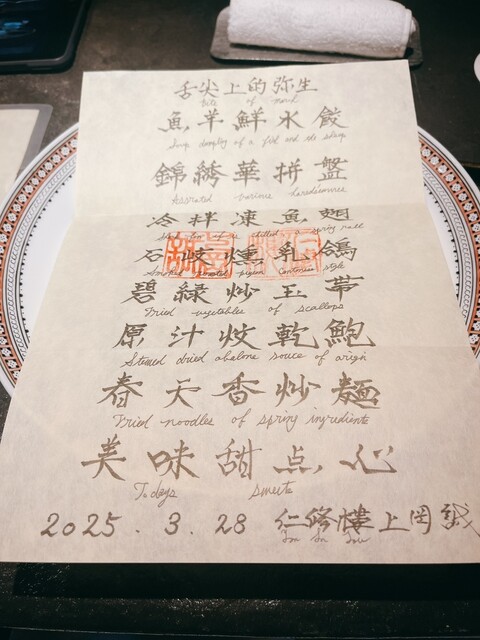 舌尖上的弥生
bite of march
魚羊鮮水餃
Soup dumpling of a fish and the sheep
錦綉華拼盤
Assorted various
冷拌凍魚翅
chilled spring
石岐燻乳鴿
Smoked pigeon Cantonese style
碧綠炒玉帯
Fried vegetables of scallops
原汁炆乾鮑
Stewed dried abalone souce of origin
春天香炒麺
Fried noodles of spring ingredients
美味甜点心
Todays sweets
2025.3.28 仁修樓上岡誠